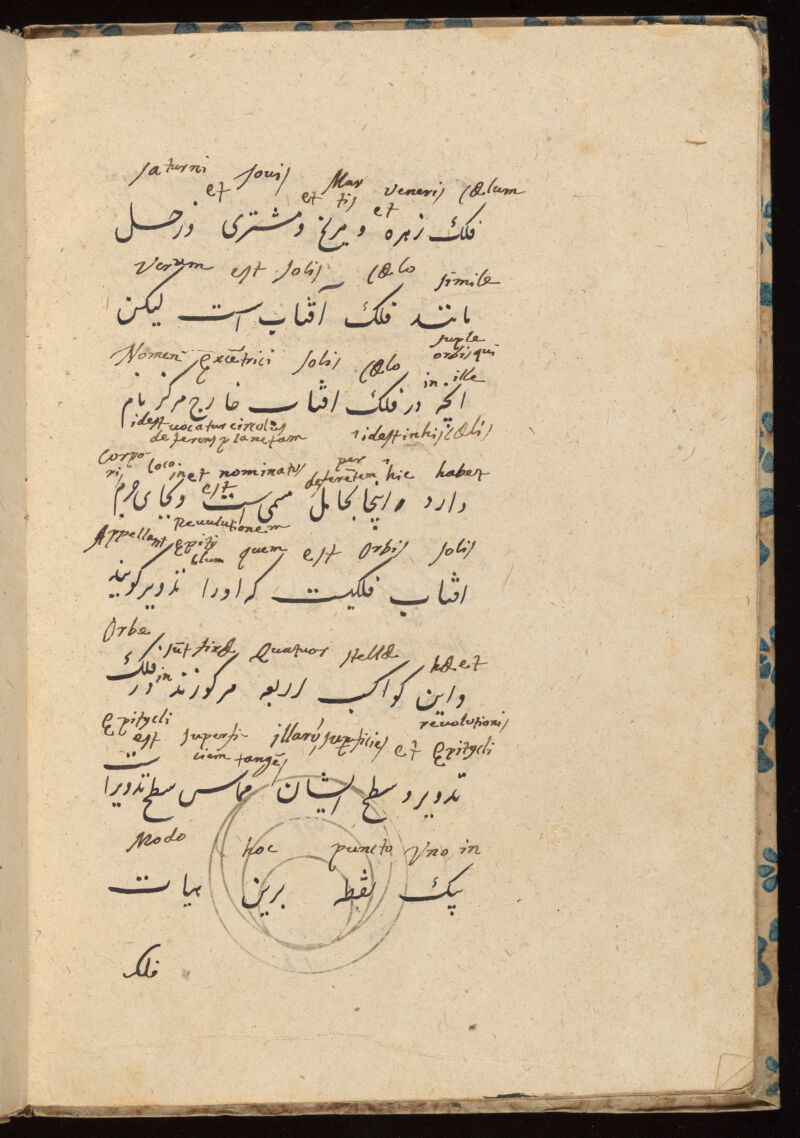 saturni et Jovis et Martis et veneris cælum
فلک زهره و مریخ و مشتری و زحل
Verum est solis cælo simile
مانند فلک آفتاب است لیکن
Nomen Excētrici solis cælo in ille orbis qui
انچه در فلک افتاب خارج مرکز نام
idest vocatur circulus deferens planetam idest in his cælis
Corpori loco in et nominatus est per deferētem hic habet
دارد و اینجا بحامل مسمی است و بجای جرم
Appellant Epityclum quem est Orbis solis
افتاب فلکیست که اورا تدویر گویند
Orbe in sūt fixæ quatuor stellæ hæ et
و این کواکب اربعه مرکوزند در فلک
Epitycli est superficiem tangēs illarū superficies et Epitycli revolutionis
تدویر و سطح ایشان مماس سطح تدویر است
Modo hoc puncto Vno in
بیک نقطه برین هیات
فلک